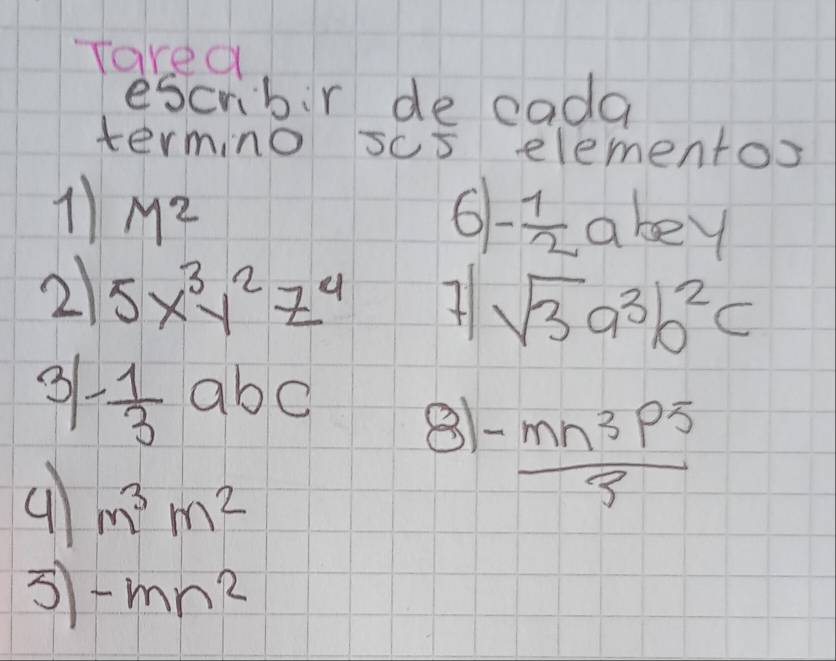 Tarea
escribir de cada
termino scs elementos
1) M²
2) 5x³y²z⁴
3) -1/3 abc
4) m³ m²
5) -mn²
6) -1/2 abey
7) √3 a³b²c
8) -mn³p⁵/3